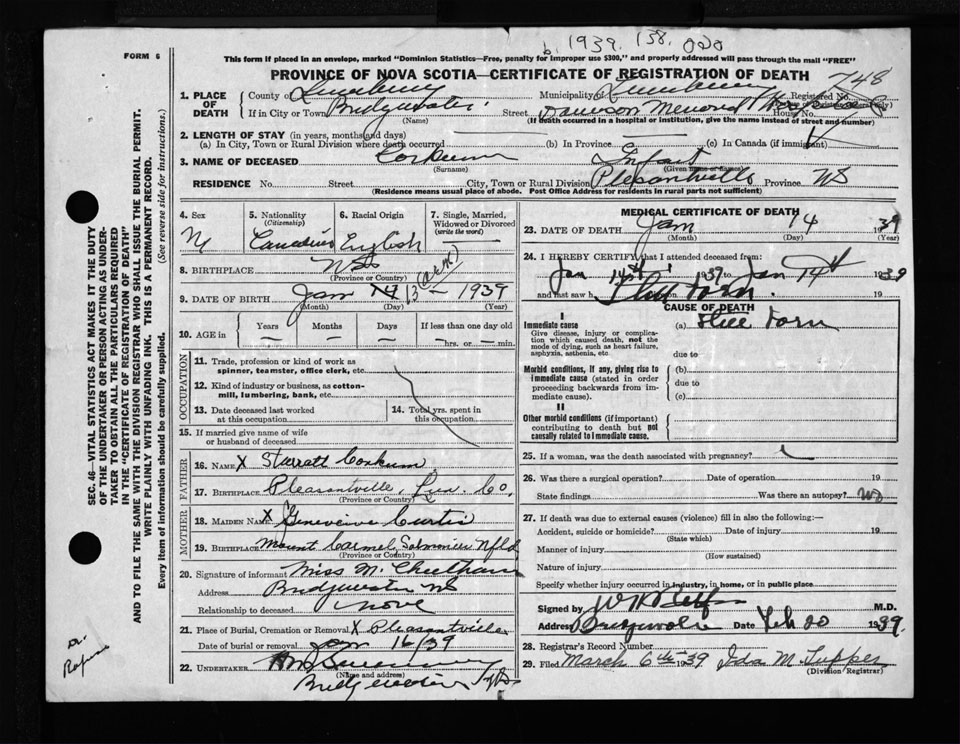 1939. 138. 020
FORM 6
This form if placed in an envelope, marked "Dominion Statistics—Free, penalty for improper use $300," and properly addressed will pass through the mail "FREE"
PROVINCE OF NOVA SCOTIA—CERTIFICATE OF REGISTRATION OF DEATH
748
1. PLACE OF DEATH
County of Lunenburg Municipality of Lunenburg Registered No.
If in City or Town Bridgewater Street Dawson Memorial Hospital House No.
(Name) (If death occurred in a hospital or institution, give the name instead of street and number)
2. LENGTH OF STAY (in years, months and days)
(a) In City, Town or Rural Division where death occurred (b) In Province (c) In Canada (if immigrant)
3. NAME OF DECEASED Corkum Infant
(Surname) (Given name or names)
RESIDENCE No. Street City, Town or Rural Division Pleasantville Province NS
(Residence means usual place of abode. Post Office Address for residents in rural parts not sufficient)
4. Sex M
5. Nationality (Citizenship) Canadian
6. Racial Origin English
7. Single, Married, Widowed or Divorced (write the word)
8. BIRTHPLACE NS
(Province or Country)
9. DATE OF BIRTH Jan 14 13 - 1939
(Month) (Day) (Year)
10. AGE in Years Months Days If less than one day old
— — — —hrs. or — min.
OCCUPATION
11. Trade, profession or kind of work as spinner, teamster, office clerk, etc.
12. Kind of industry or business, as cotton-mill, lumbering, bank, etc.
13. Date deceased last worked at this occupation
14. Total yrs. spent in this occupation
15. If married give name of wife or husband of deceased
FATHER
16. NAME X Starratt Corkum
17. BIRTHPLACE Pleasantville, Lun. Co.
(Province or Country)
MOTHER
18. MAIDEN NAME X Genevieve Curtis
19. BIRTHPLACE Mount Carmel, Salmonier Nfld
(Province or Country)
20. Signature of informant Miss M. Cheetham
Address Bridgewater NS
Relationship to deceased None
21. Place of Burial, Cremation or Removal X Pleasantville
Date of burial or removal Jan 16/39
22. UNDERTAKER
(Name and address)
Bridgewater
MEDICAL CERTIFICATE OF DEATH
23. DATE OF DEATH Jan 14 1939
(Month) (Day) (Year)
24. I HEREBY CERTIFY that I attended deceased from:
Jan 14th 1939 to Jan 14th 1939
and last saw h Still Born. 19
CAUSE OF DEATH
I
Immediate cause (a) Still Born
Give disease, injury or complication which caused death, not the mode of dying, such as heart failure, asphyxia, asthenia, etc.
due to
Morbid conditions, if any, giving rise to immediate cause (stated in order proceeding backwards from immediate cause).
(b)
due to
(c)
II
Other morbid conditions (if important) contributing to death but not causally related to immediate cause.
25. If a woman, was the death associated with pregnancy?
26. Was there a surgical operation? Date of operation 19
State findings Was there an autopsy? No
27. If death was due to external causes (violence) fill in also the following:—
Accident, suicide or homicide? Date of injury 19
(State which)
Manner of injury
(How sustained)
Nature of injury
Specify whether injury occurred in industry, in home, or in public place
Signed by M.D.
Address Bridgewater Date Feb 20 1939.
28. Registrar's Record Number
29. Filed March 6th 1939 Ida M. Tupper
(Division Registrar)
SEC. 46—VITAL STATISTICS ACT MAKES IT THE DUTY OF THE UNDERTAKER OR PERSON ACTING AS UNDERTAKER TO OBTAIN ALL THE PARTICULARS REQUIRED IN THE "CERTIFICATE OF REGISTRATION OF DEATH" AND TO FILE THE SAME WITH THE DIVISION REGISTRAR WHO SHALL ISSUE THE BURIAL PERMIT.
WRITE PLAINLY WITH UNFADING INK. THIS IS A PERMANENT RECORD.
Every item of information should be carefully supplied. (See reverse side for instructions.)